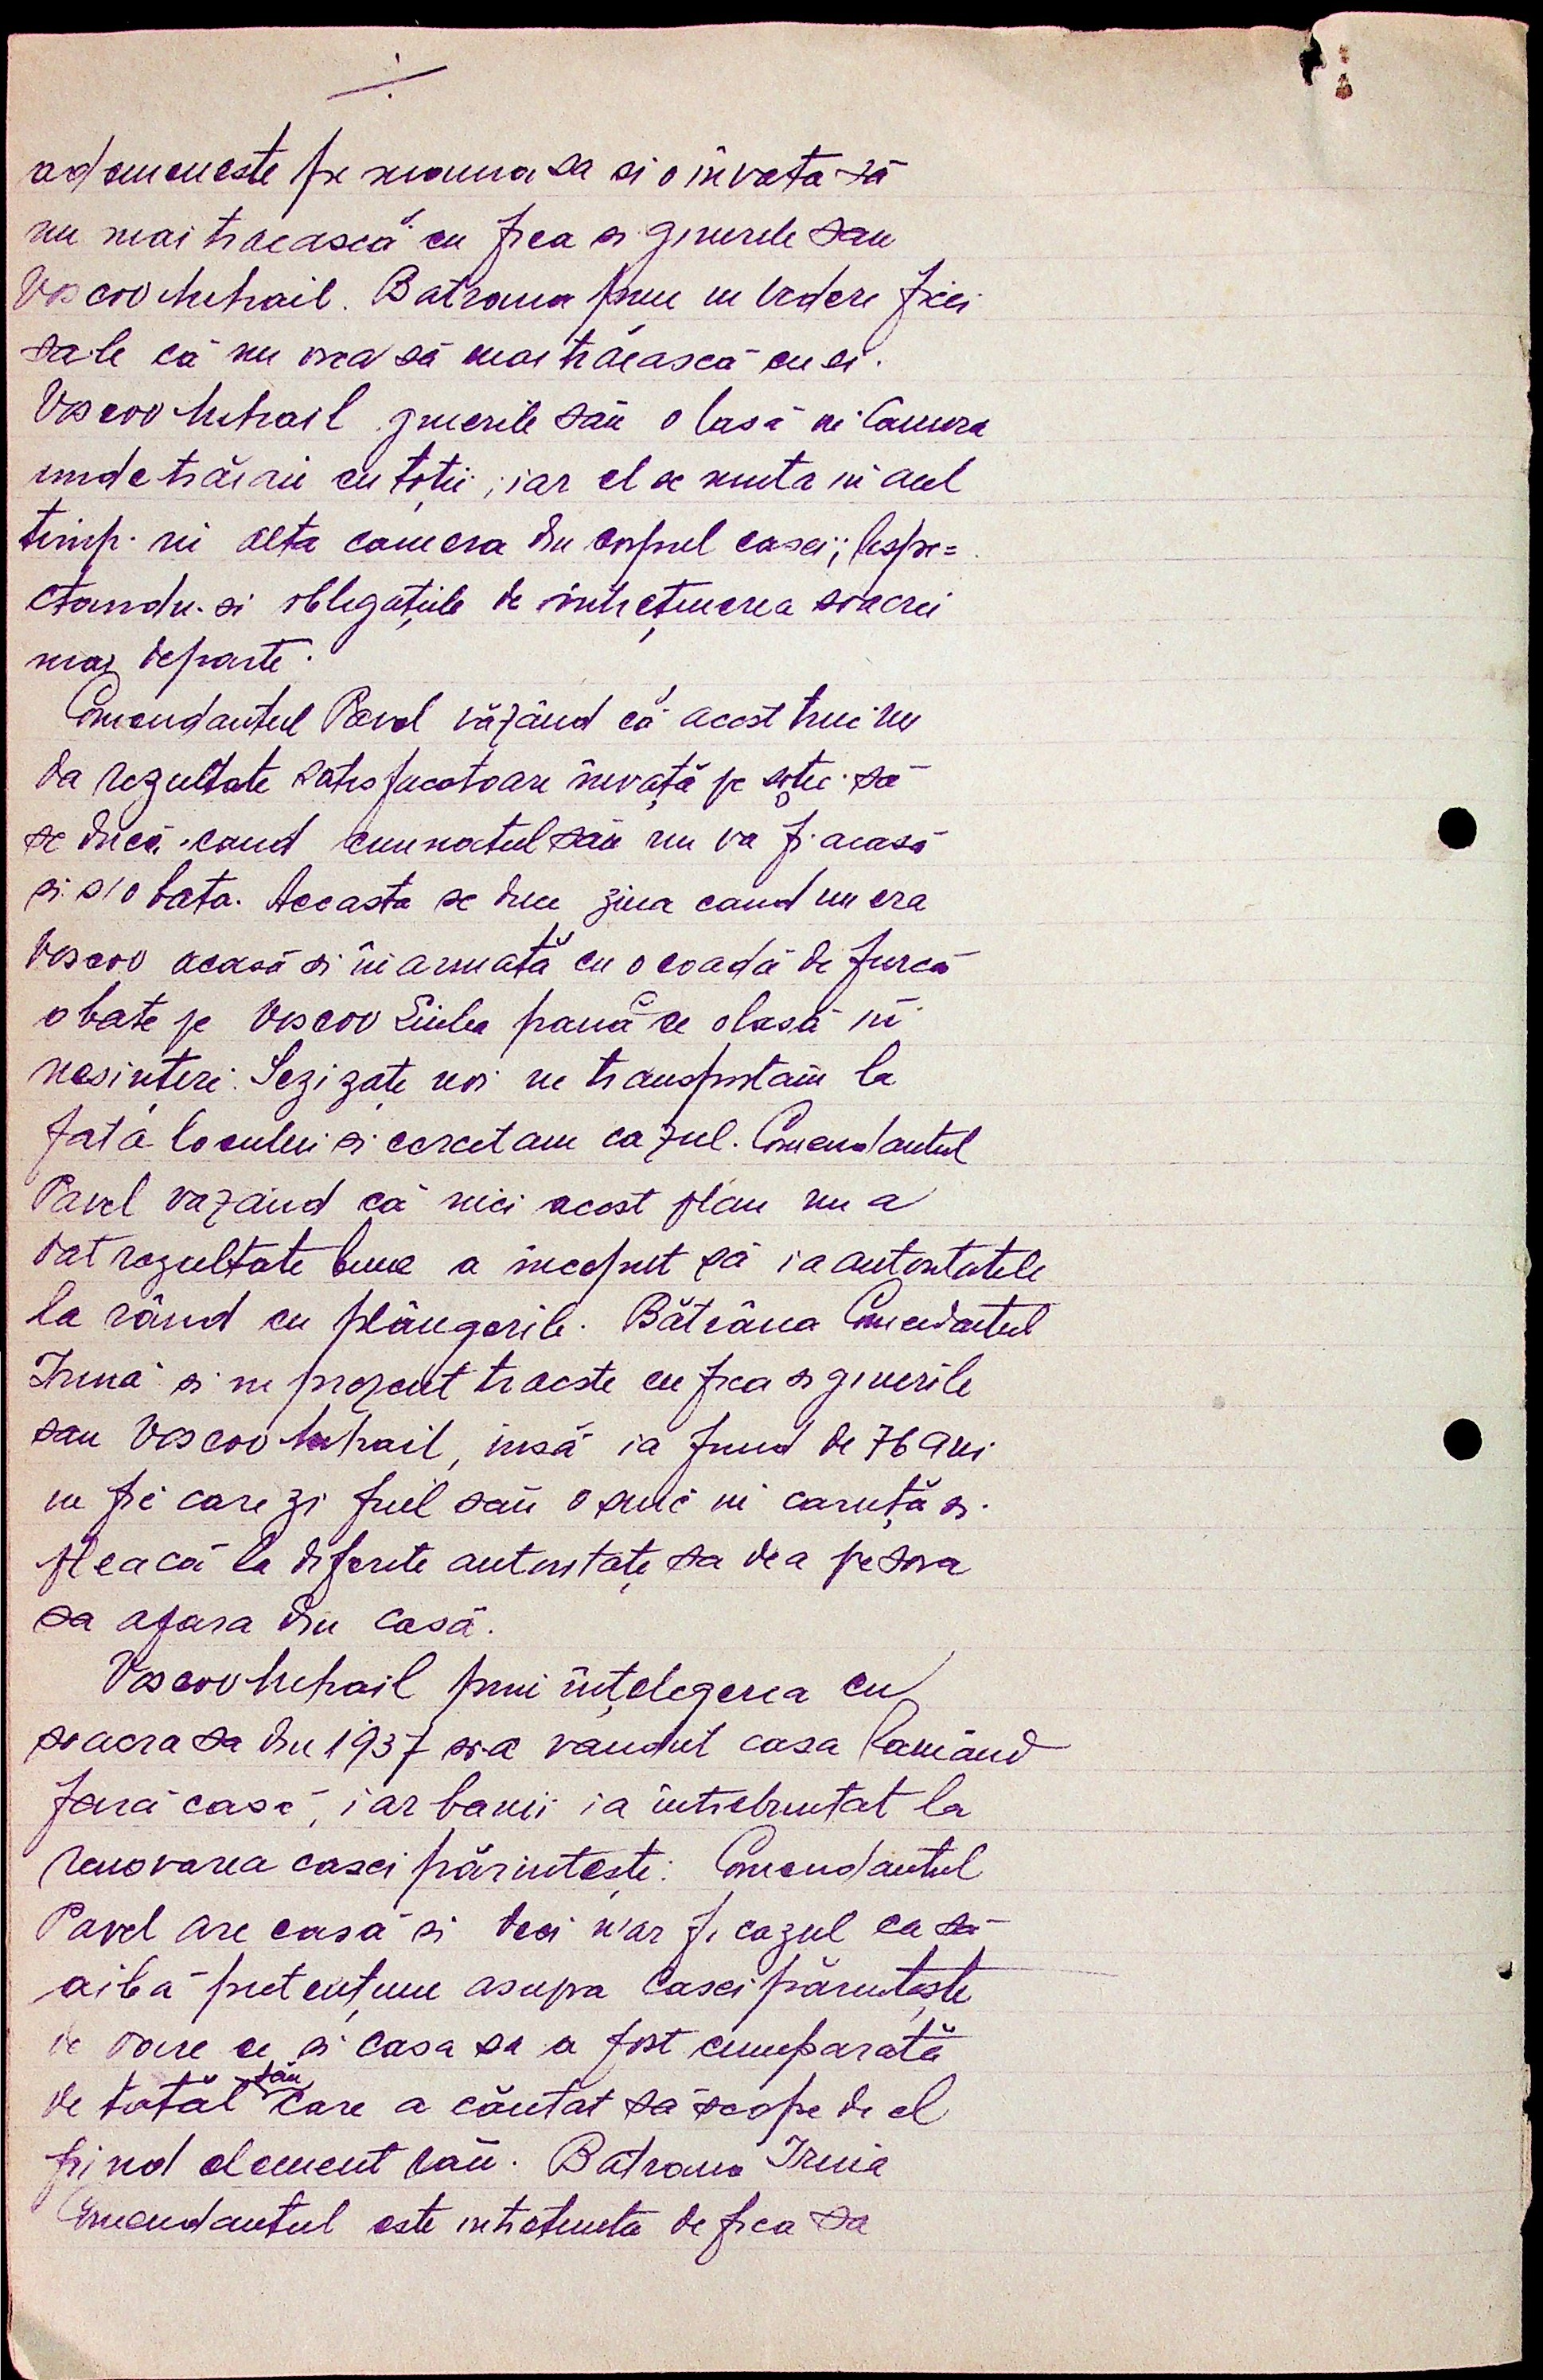 ademeneste pe mama sa si o invata să
nu mai traească cu fica si ginerele sau
Voscov Mihail. Batrana pune in vedere ficei
sale că nu vrea să mai trăească cu ei.
Voscov Mihail ginerile său o lasă in camera
unde trăiau cu toții, iar el se muta in acel
timp in alta camera din corpul casei; respe=
ctandu-si obligațiile de intreținerea soacrei
mai departe.
Comendantul Pavel văzând că acest truc nu
da rezultate satisfacatoare învață pe soție să
se ducă cand cumnatul său nu va fi acasă
si s'o bata. Aceasta se duce ziua cand nu era
Voscov acasă si înarmată cu o coadă de furcă
o bate pe Voscov pană ce o lasă în
nesințeri. Sezizați noi ne transportăm la
fată locului si cercetam cazul. Comendantul
Pavel vazând că nici acest plan nu a
dat rezultate bune a inceput să ia autoritatele
la rând cu plângerile. Bătrâna Comendantul
Irina si in prezent traeste cu fica si ginerile
sau Voscov Mihail, insă ia fiind de 76 ani
in fie care zi fiul său o suie in caruță si
pleacă la diferite autorități sa dea pe sora
sa afara din casă.
Voscov Mihail prin ințelegerea cu
soacra sa din 1937 si-a vandut casa ramănd
fară casă, iar banii ia întrebuintat la
renovarea casei părintești. Comendantul
Pavel are casă si deci n'ar fi cazul ca să
aibă pretențiune asupra casei părintești
de oare ce si casa sa a fost cumparată
de tatăl său care a căutat să scape de el
fiind element rău. Bătrana Irina
Comendantul este intretinuta de fica sa